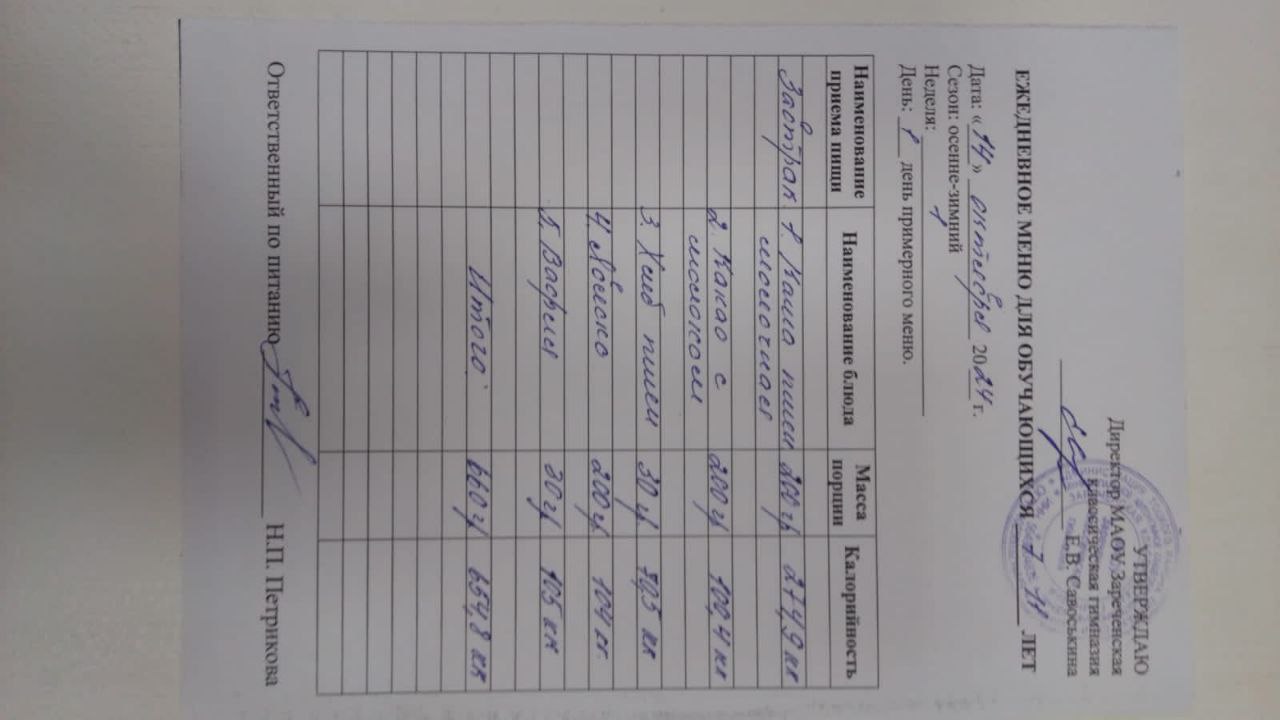 УТВЕРЖДАЮ
Директор МАОУ Зареченская
классическая гимназия
Е.В. Савоськина
ЕЖЕДНЕВНОЕ МЕНЮ ДЛЯ ОБУЧАЮЩИХСЯ 7-11 ЛЕТ
Дата: «14» октября 2024 г.
Сезон: осенне-зимний
Неделя: 1
День: 1 день примерного меню.
Наименование приема пищи Наименование блюда Масса порции Калорийность
Завтрак 1. Каша пшен 200 гр 274,9 кк
молочная
2. Какао с 200 гр 100,4 кк
молоком
3. Хлеб пшен 30 гр 70,5 кк
4. Яблоко 200 гр 104 кк.
5. Вафли 30 гр 105 кк
Итого: 660 гр 654,8 кк
Ответственный по питанию Н.П. Петрикова